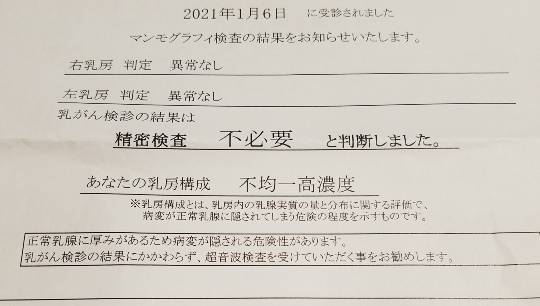 2021年1月6日 に受診されました
マンモグラフィ検査の結果をお知らせいたします。
右乳房 判定 異常なし
左乳房 判定 異常なし
乳がん検診の結果は
精密検査 不必要 と判断しました。
あなたの乳房構成 不均一高濃度
※乳房構成とは、乳房内の乳腺実質の量と分布に関する評価で、
病変が正常乳腺に隠されてしまう危険の程度を示すものです。
正常乳腺に厚みがあるため病変が隠される危険性があります。
乳がん検診の結果にかかわらず、超音波検査を受けていただく事をお勧めします。